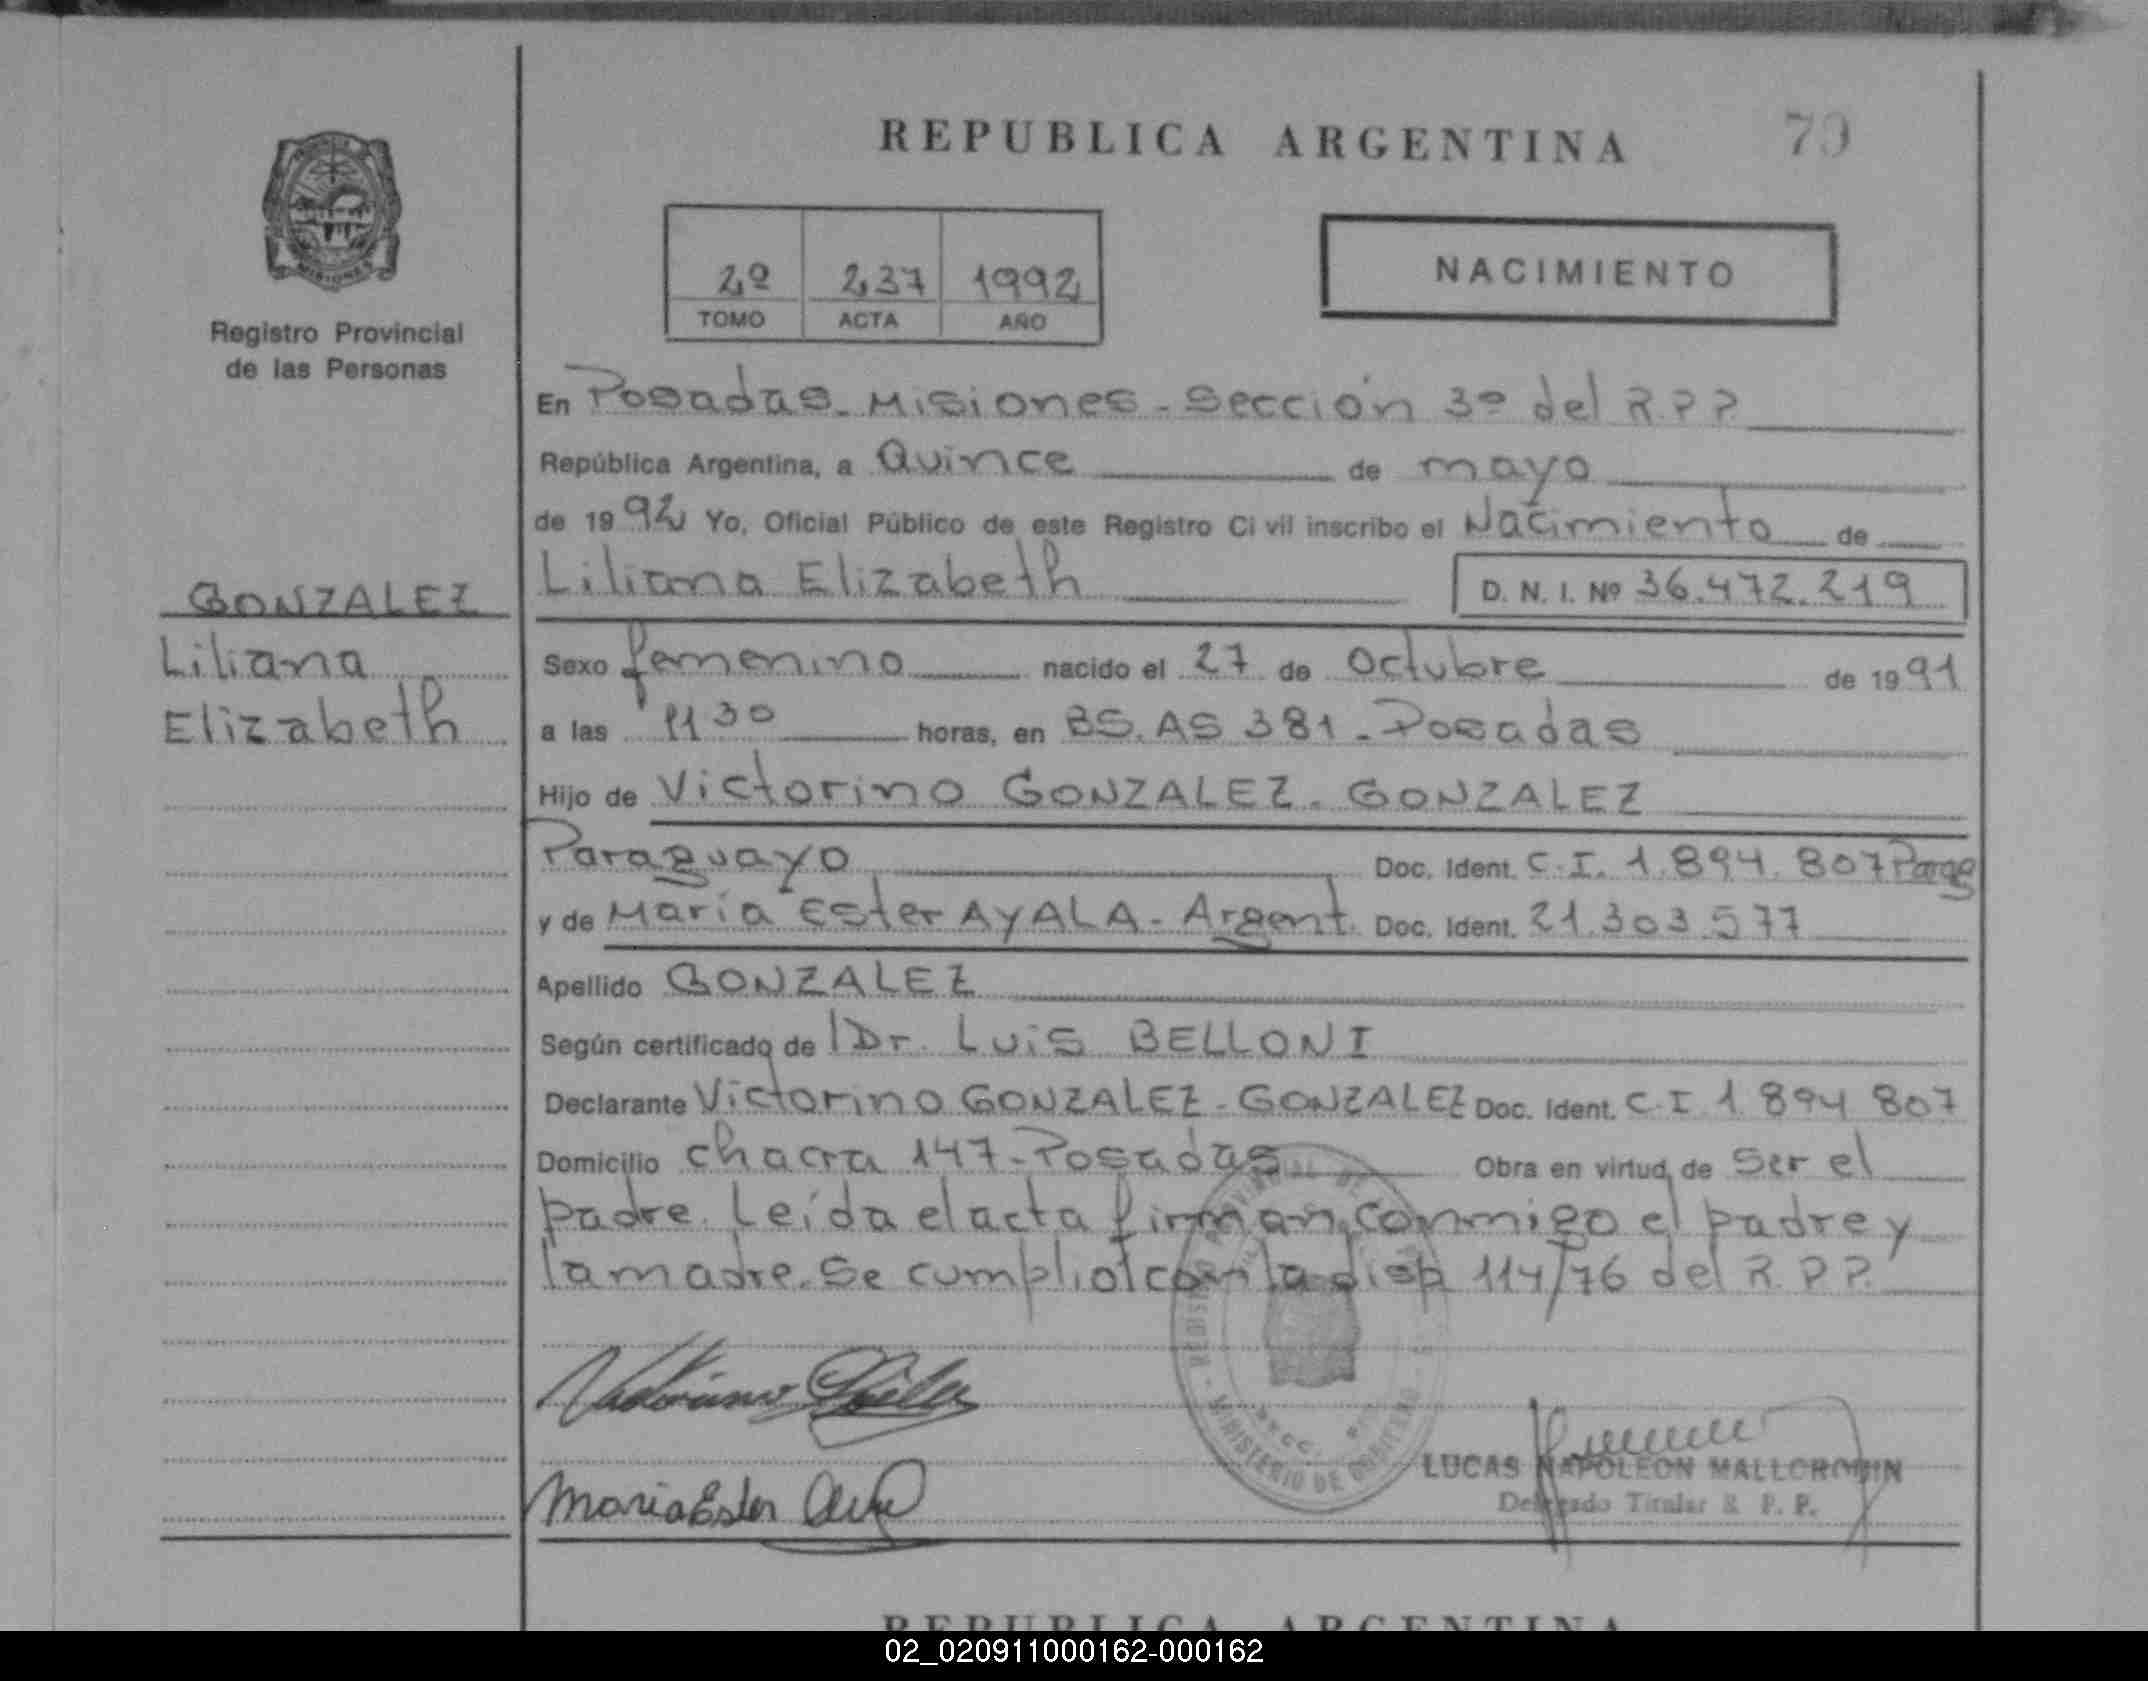 REPUBLICA ARGENTINA
79
MISIONES
Registro Provincial
de las Personas
2º 237 1992
TOMO ACTA AÑO
NACIMIENTO
En Posadas - Misiones - Sección 3º del R.P.P
República Argentina, a Quince de mayo
de 1992 Yo, Oficial Público de este Registro Civil inscribo el Nacimiento de
Liliana Elizabeth D. N. I. Nº 36.472.219
GONZALEZ
Liliana
Elizabeth
Sexo femenino nacido el 27 de Octubre de 1991
a las 11 30 horas, en BS. AS 381 - Posadas
Hijo de Victorino GONZALEZ - GONZALEZ
Paraguayo Doc. Ident. C.I. 1.894.807 Parag
y de María Ester AYALA - Argent. Doc. Ident. 21.303.577
Apellido GONZALEZ
Según certificado de Dr. Luis BELLONI
Declarante Victorino GONZALEZ - GONZALEZ Doc. Ident. C.I 1 894 807
Domicilio chacra 147 - Posadas Obra en virtud de ser el
padre. Leída el acta firman conmigo el padre y
la madre. Se cumplió con la disp 114/76 del R.P.P.
Maria Ester
MINISTERIO DE GOBIERNO
LUCAS NAPOLEON
Delegado Titular R. P. P.
REPUBLICA ARGENTINA
02_020911000162-000162